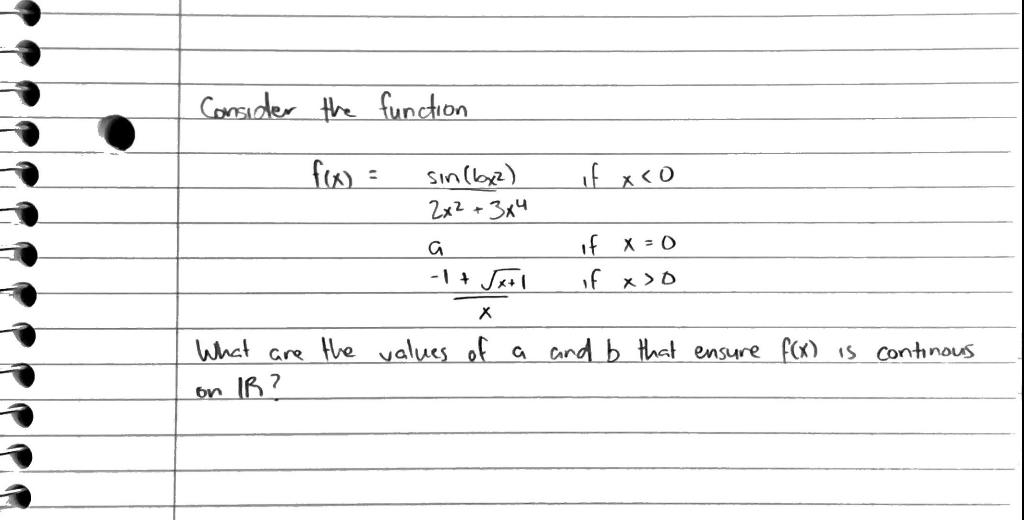 Consider the function
f(x) = sin(bx²) if x < 0
2x² + 3x⁴
a if x = 0
-1 + √x+1 if x > 0
x
What are the values of a and b that ensure f(x) is continous
on ℝ?